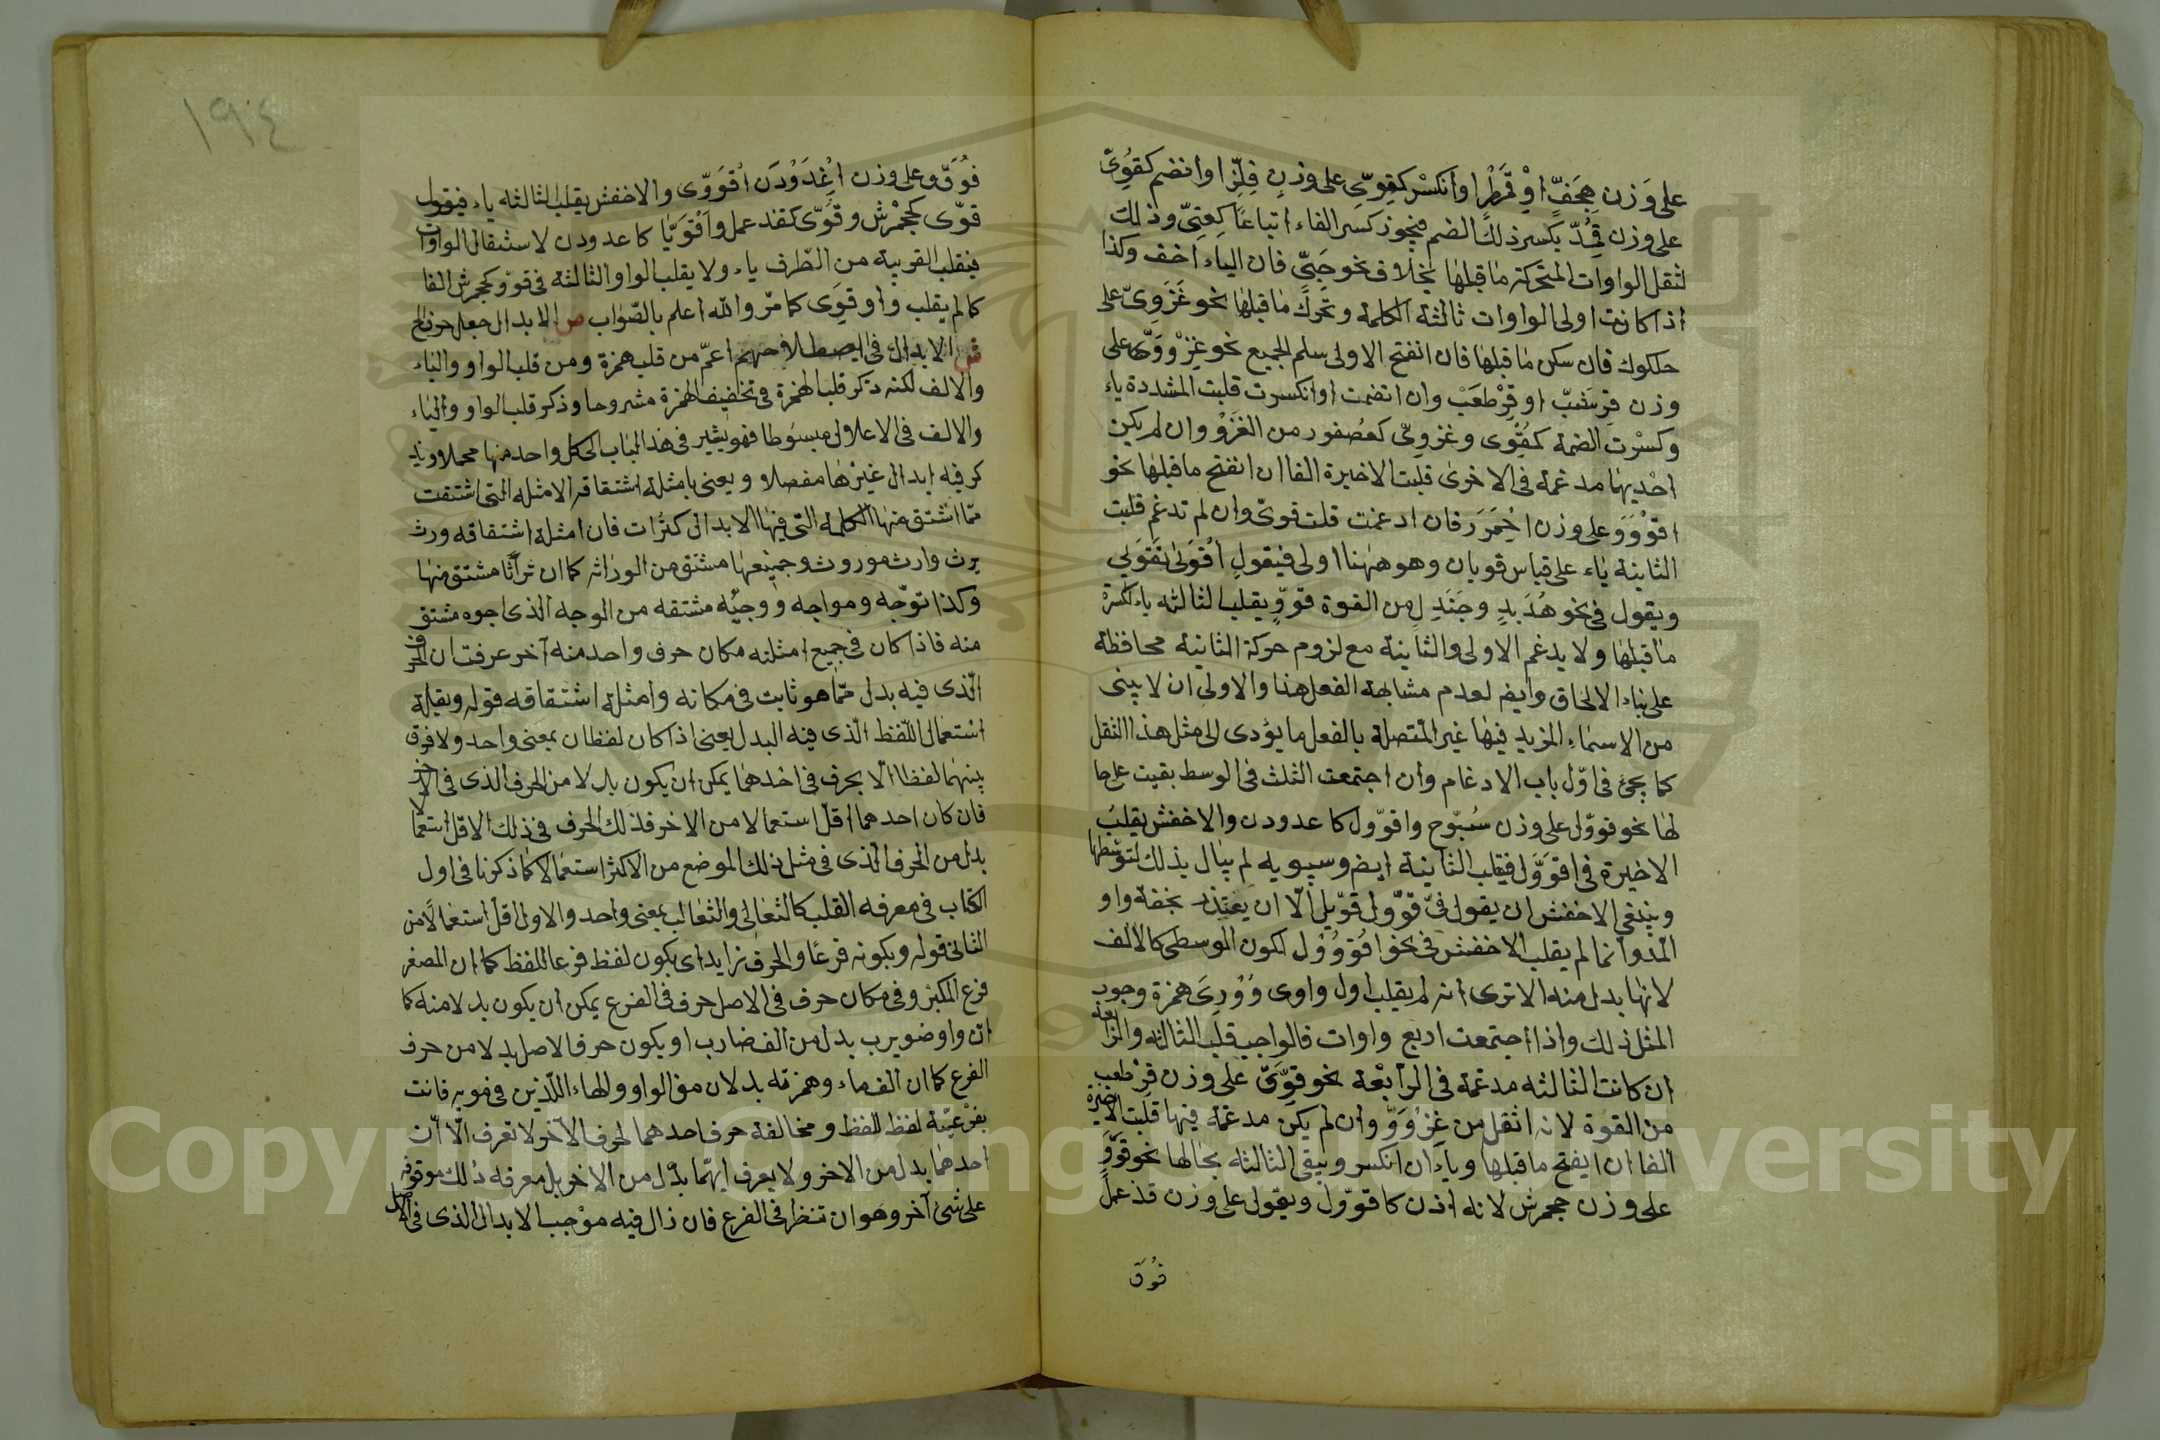 على وزن هِجَفٍّ اوْ قَمَطْرٍ اوانكسر كقِوِىّ على وزن فِلِزٍّ اوانضم كقُوِىّ
على وزن قُمُدّ بكسر ذلك الضم فيجوز كسر الفاء اتباعًا كعِتِىّ وذلك
لثقل الواوات المتحركة ماقبلها بخلاف نحو حَيِىّ فان الياء اخف وكذا
اذا كانت اولى الواوات ثالثة الكلمة وتحرك ماقبلها نحو غَزَوِىّ على
حلكوك فان سكن ماقبلها فان انفتح الاولى سلم الجميع نحو غِزْوَوٍّ على
وزن قِرشَبّ او قِرْطَعْب وان انضمت اوانكسرت قلبت المشددة ياء
وكسرت الضمة كمُقوِى وغزوِىّ كعُصفور من الغَزْوِ وان لم يكن
احْديهٰا مدغمة فى الاخرى قلبت الاخيرة الفا ان انفتح ماقبلها نحو
اقْوَوَ على وزن احْمَرَرَ فان ادغمت قلت قوىّ وان لم تدغم قلبت
الثانية ياء على قياس قويان وهو ههنا اولى فيقول اقْوَىٰ نَقْوَيى
ويقول فى نحو هُدَبِدٍ وجَنَدِلٍ من القوة قَوَوٍ يقلب الثالثة ياء لكسرة
ماقبلها ولا يدغم الاولى والثانية مع لزوم حركة الثانية محافظة
على بناء الالحاق وايضر لعدم مشابهة الفعل هذا والاولى ان لا يبنى
من الاسماء المزيد فيها غير المتصلة بالفعل ما يؤدى الى مثل هذا الثقل
كما يجئ فى اوّل باب الادغام وان اجتمعت الثلث فى الوسط بقيت على حا
لها نحو قووّل على وزن سُبّوح واقووّل كاغدودن والاخفش يقلب
الاخيرة فى اقووّل فيقلب الثانية ايضر وسيبويه لم يبال بذلك لتوسّطها
وينبغى الاخفش ان يقول فى قوّول قوّيل الّا ان يعتذر بخفة واو
المد وانما لم يقلب الاخفش فى نحو اقْوُوول لكون الوسطى كالالف
لانها بدل منه الا ترى انه لم يقلب اول واوى وُوْرِىَ همزة وجوب
المثل ذلك واذا اجتمعت اربع واوات فالواجب قلب الثالثة والرابعة
ان كانت الثالثه مدغمة فى الرابعة نحو قِوَّىّ على وزن قِرْطعب
من القوة لانه اثقل من غِزْوَوٍّ وان لم يكن مدغمة فيها قلبت الاخيرة
الفا ان ايفتح ماقبلها وياء ان انكسر ويبقى الثالثه بحالها نحو قوّوٍ
على وزن جحمرش لانه اذن كاقووّل ويقولى على وزن قذعمل
قُوَّ
١٩٤
قُوَّو وعلى وزن اغْدَوْدَن اقْوَوّى والاخفش يقلب الثالثه ياء فيقول
قوّى كجحْمرش وقُوَّى كقذعمل واقْوَيّا كاغدودن لاستثقال الواوات
فيقلب القريبة من الطّرف ياء ولا يقلب الواو الثالثة فى قوّو كجحمرش الفا
كما لم يقلب واو قَوِىَ كما مرّ والله اعلم بالصّواب ص الابدال جعل حرف الخ
ش الابدال فى اصطلاحهم اعمّ من قلب همزة ومن قلب الواو والياء
والالف لكنه ذكر قلب الهمزة فى تخفيف الهمزة مشروحا وذكر قلب الواو والياء
والالف فى الاعلال مبسوطا فهو يشير فى هذا الباب الى كل واحد منها مجملا ويذ
كر فيه ابدال غيرها مفصلا ويعنى بامثلة اشتقاقه الامثله التى اشتقت
ممّا اشتق منها الكلمة التى فيها الابدال كتُراث فان امثلة اشتقاقه ورث
يرث وارث موروث وجميعها مشتق من الوراثه كما ان تراثا مشتق منها
وكذا توّجه ومواجه ووجيه مشتقه من الوجه الذى اجوه مشتق
منه فاذا كان فى جميع امثلته مكان حرف واحد منه آخر عرفت ان الحرف
الّذى فيه بدل ممّا هو ثابت فى مكانه وامثلة اشتقاقه قوله وبقلة
استعمال اللّفظ الّذى فيه البدل يعنى اذا كان لفظان بمعنى واحد ولا فرق
بينهما لفظا الّا بحرف فى احدهما يمكن ان يكون بدلا من الحرف الذى فى الآخر
فان كان احدهما اقلّ استعمالا من الاخر فذلك الحرف فى ذلك الاقل استعمالا
بدل من الحرف الّذى فى مثل ذلك الموضع من الاكثر استعمالا كما ذكرنا فى اول
الكتاب فى معرفه القلب كالثعالى والثعالب بمعنى واحد والاول اقل استعمالًا من
الثانى قوله وبكونه فرعًا والحرف زايد اى يكون لفظ فرعا للفظ كما ان المصغر
فرع المكبر وفى مكان حرف فى الاصل حرف فى الفرع يمكن ان يكون بدلا منه كا
انّ واو ضويرب بدل من الف ضارب او يكون حرف الاصل بدلا من حرف
الفرع كما ان الف ماء وهمزته بدلان من الواو والهاء اللّذين فى مويه فانت
بفرعيّة لفظ للفظ ومخالفة حرف احدهما لحرف الآخر لا تعرف الّا انّ
احدهما بدل من الاخر ولا يعرف ايهّما بدل من الاخر بل معرفه ذلك موقوفه
على شئ آخر وهو ان تنظر فى الفرع فان زال فيه موجب الابدال الذى فى الاصل
Copyright © King Saud University